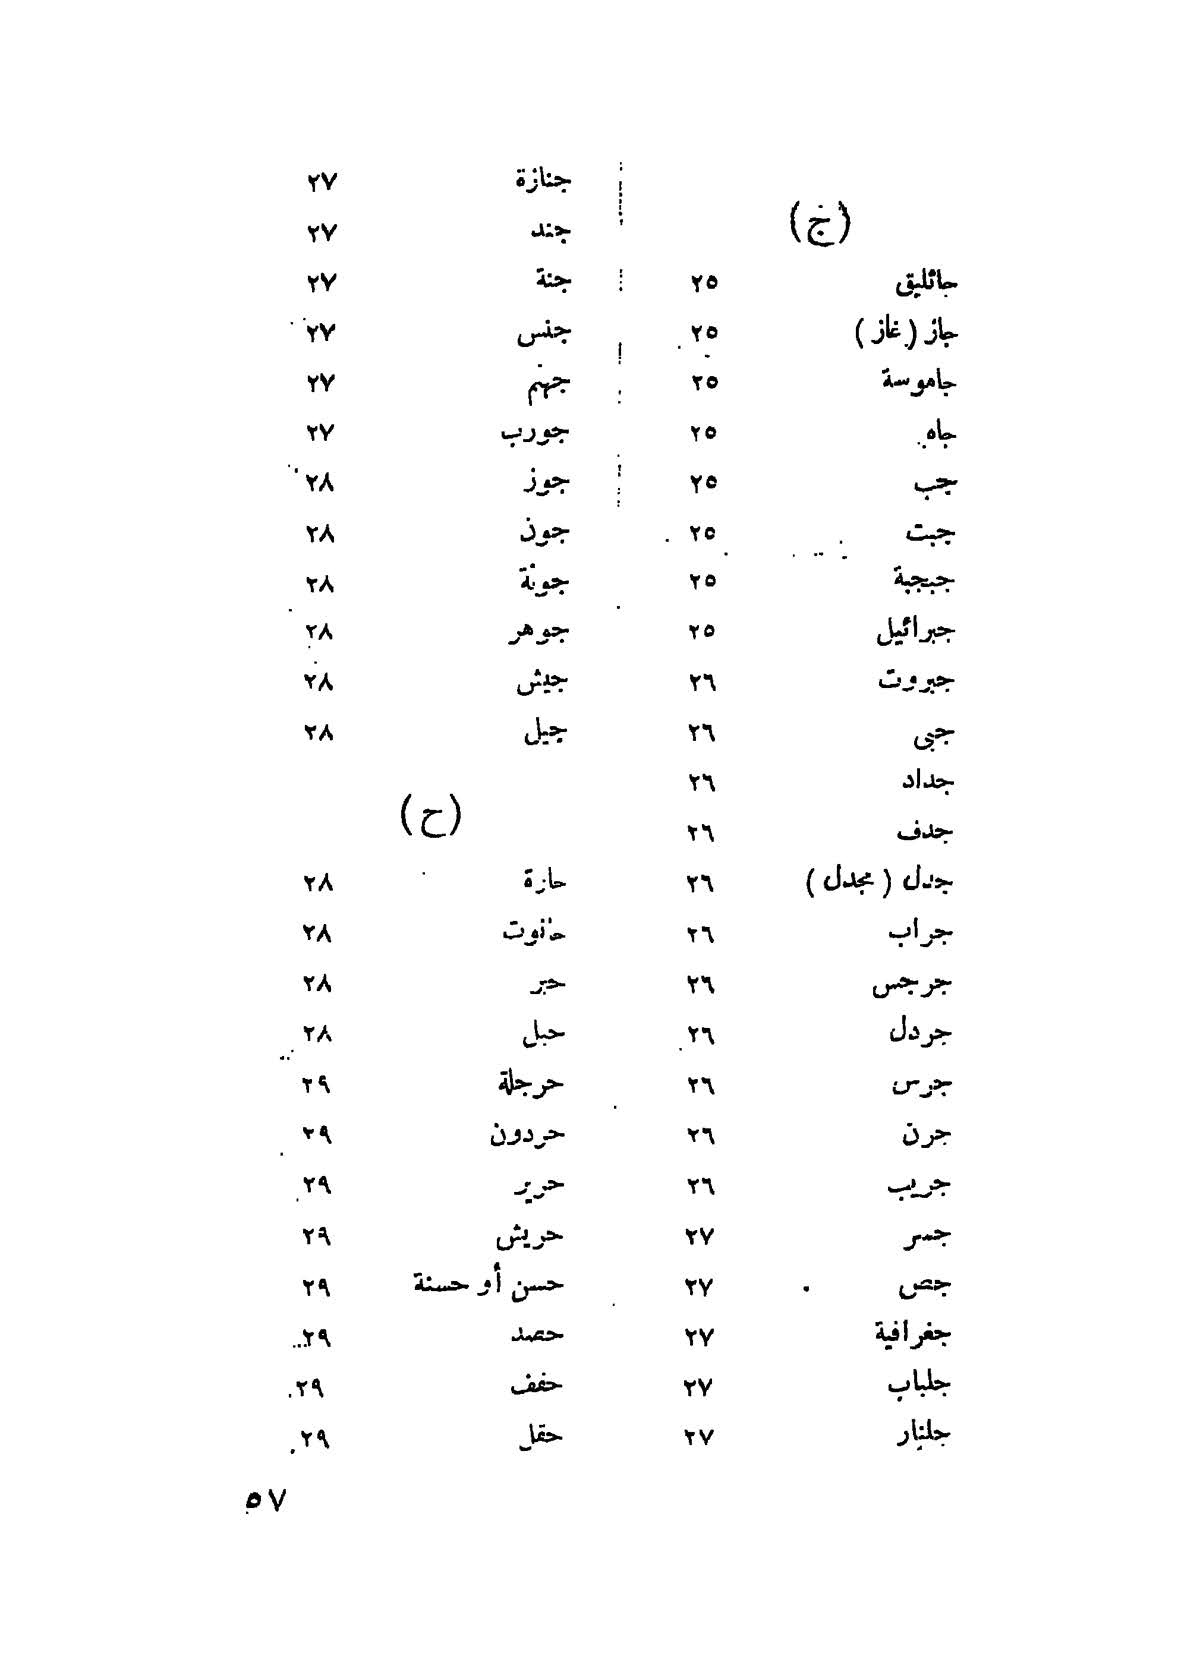 (ج)
جاثليق ٢٥
جاز ( غاز ) ٢٥
جاموسة ٢٥
جاه ٢٥
جب ٢٥
جبت ٢٥
جبجبة ٢٥
جبرائيل ٢٥
جبروت ٢٦
جبى ٢٦
جداد ٢٦
جدف ٢٦
جدل ( مجدل ) ٢٦
جراب ٢٦
جرجس ٢٦
جردل ٢٦
جرس ٢٦
جرن ٢٦
جريب ٢٦
جسر ٢٧
جص ٢٧
جغرافية ٢٧
جلباب ٢٧
جلنار ٢٧
جنازة ٢٧
جند ٢٧
جنة ٢٧
جنس ٢٧
جهنم ٢٧
جورب ٢٧
جوز ٢٨
جون ٢٨
جونة ٢٨
جوهر ٢٨
جيش ٢٨
جيل ٢٨
(ح)
حازة ٢٨
حانوت ٢٨
حبر ٢٨
حبل ٢٨
حرجلة ٢٩
حردون ٢٩
حرير ٢٩
حريش ٢٩
حسن أو حسنة ٢٩
حصد ٢٩
حفف ٢٩
حقل ٢٩
٥٧